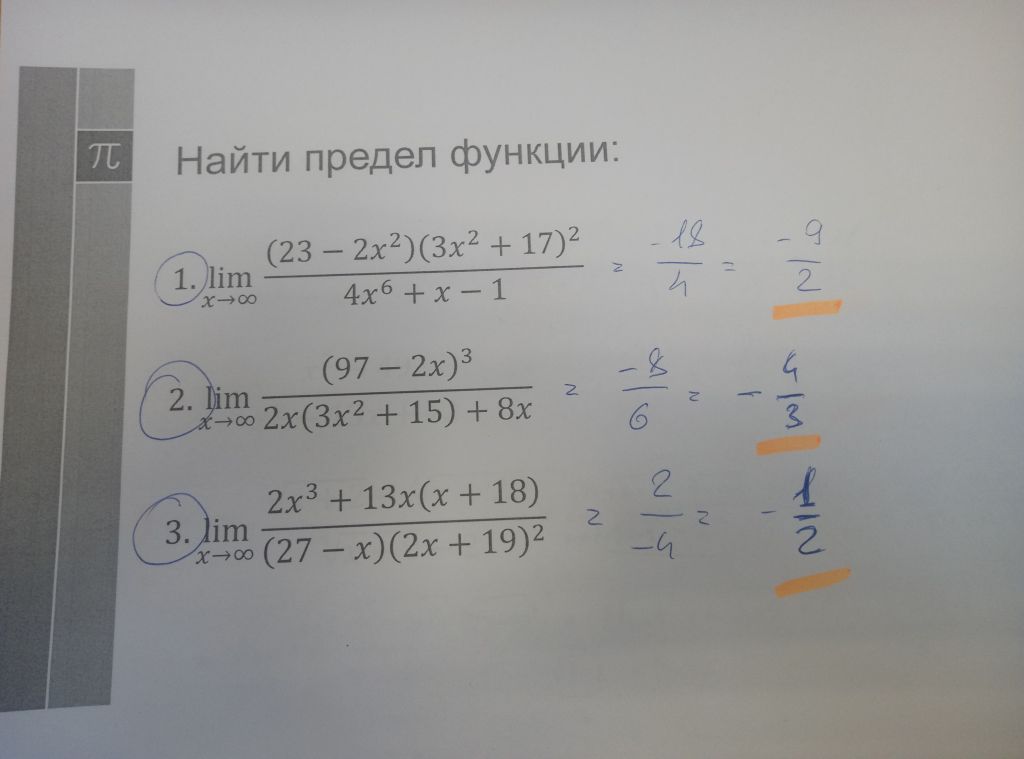 π
Найти предел функции:
1. lim x→∞ (23 − 2x²)(3x² + 17)² / 4x⁶ + x − 1 = -18/4 = -9/2
2. lim x→∞ (97 − 2x)³ / 2x(3x² + 15) + 8x = -8/6 = -4/3
3. lim x→∞ 2x³ + 13x(x + 18) / (27 − x)(2x + 19)² = 2/-4 = -1/2